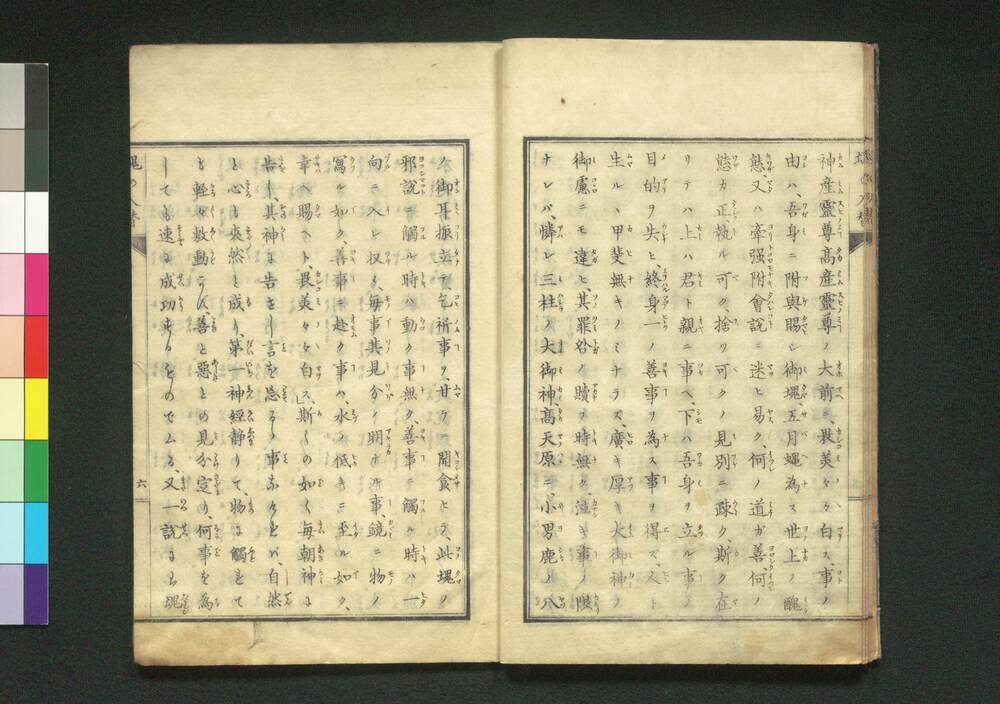 神産靈尊高産靈尊ノ大前ニ、畏美々々白ス、事ノ
由ハ、吾身ニ附與賜シ御塊、五月蠅為ス世上ノ醜
態、又ハ牽强附會説ニ迷ヒ易ク、何ノ道ガ善、何ノ
態カ正、執ル可ク捨ツ可クノ見別ニ疎ク、斯ク在
リテハ上ハ君ト親ニ事ヘ、下ハ吾身ヲ立ル事ノ
目的ヲ失ヒ、終身一ノ善事ヲ為ス事ヲ得ズ、人ト
生ル、甲斐無キノミナラズ、廣キ厚キ大御神ノ
御慮ニモ違ヒ、其罪咎ノ贖フ時無ク、泣キ事ノ限
ナレバ、憐レ三柱ノ大御神、高天原ニ、小男鹿ノ八
ノ御耳振立テ乞祈事ヲ、甘ラニ聞食ヒテ、此塊ノ
邪説ニ觸ル時ハ動ク事無ク、善事ニ觸ル時ハ一
向ニ入レ収メ、毎事其見分ノ明ナ事、鏡ニ物ノ
寫ル如ク、善事ニ赴ク事ハ、水ノ低キニ至ル如ク、
幸ヘ賜ヘト、畏美々々白ス、」斯くの如く毎朝神に
告し、其神に告をし言を忘るゝ事なくとバ、自然
と心も爽然と成り、第一神経静りて、物に觸をて
も輕々敷動ごん、善と悪との見分定り、何事を為
しても速に成功来るものでムる、又一説に曰魂
六